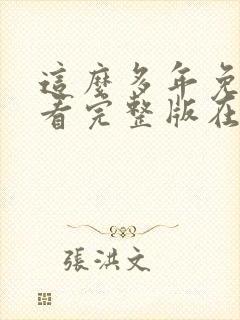 這麼多年免
看完整版在
張洪文